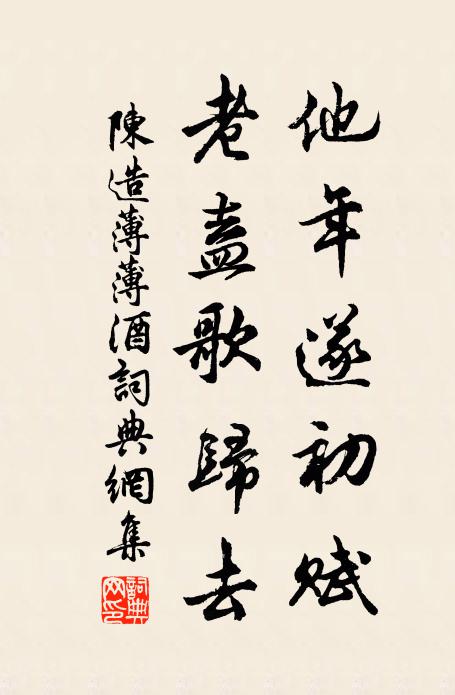 他年遂初賦
老盍歌歸去
陳造薄薄酒詞典網集
詞典网印